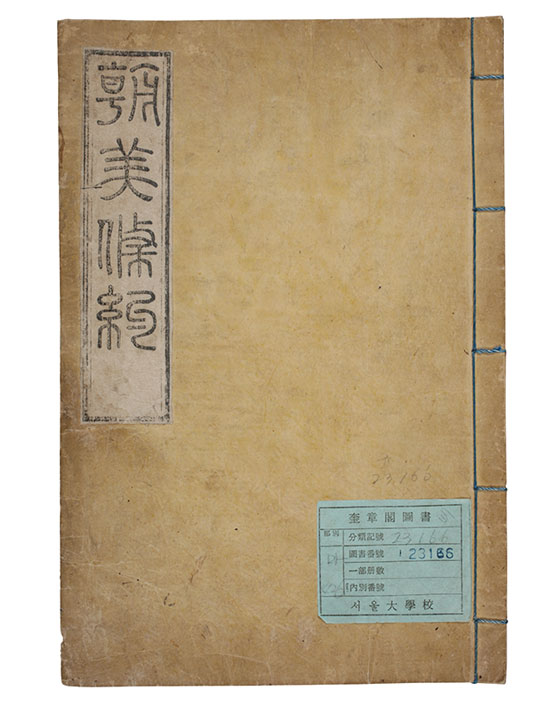 朝美條約
23166
奎章閣圖書
部別
分類記號 23166
圖書番號 23166
一部册數
內別番號
서울大學校